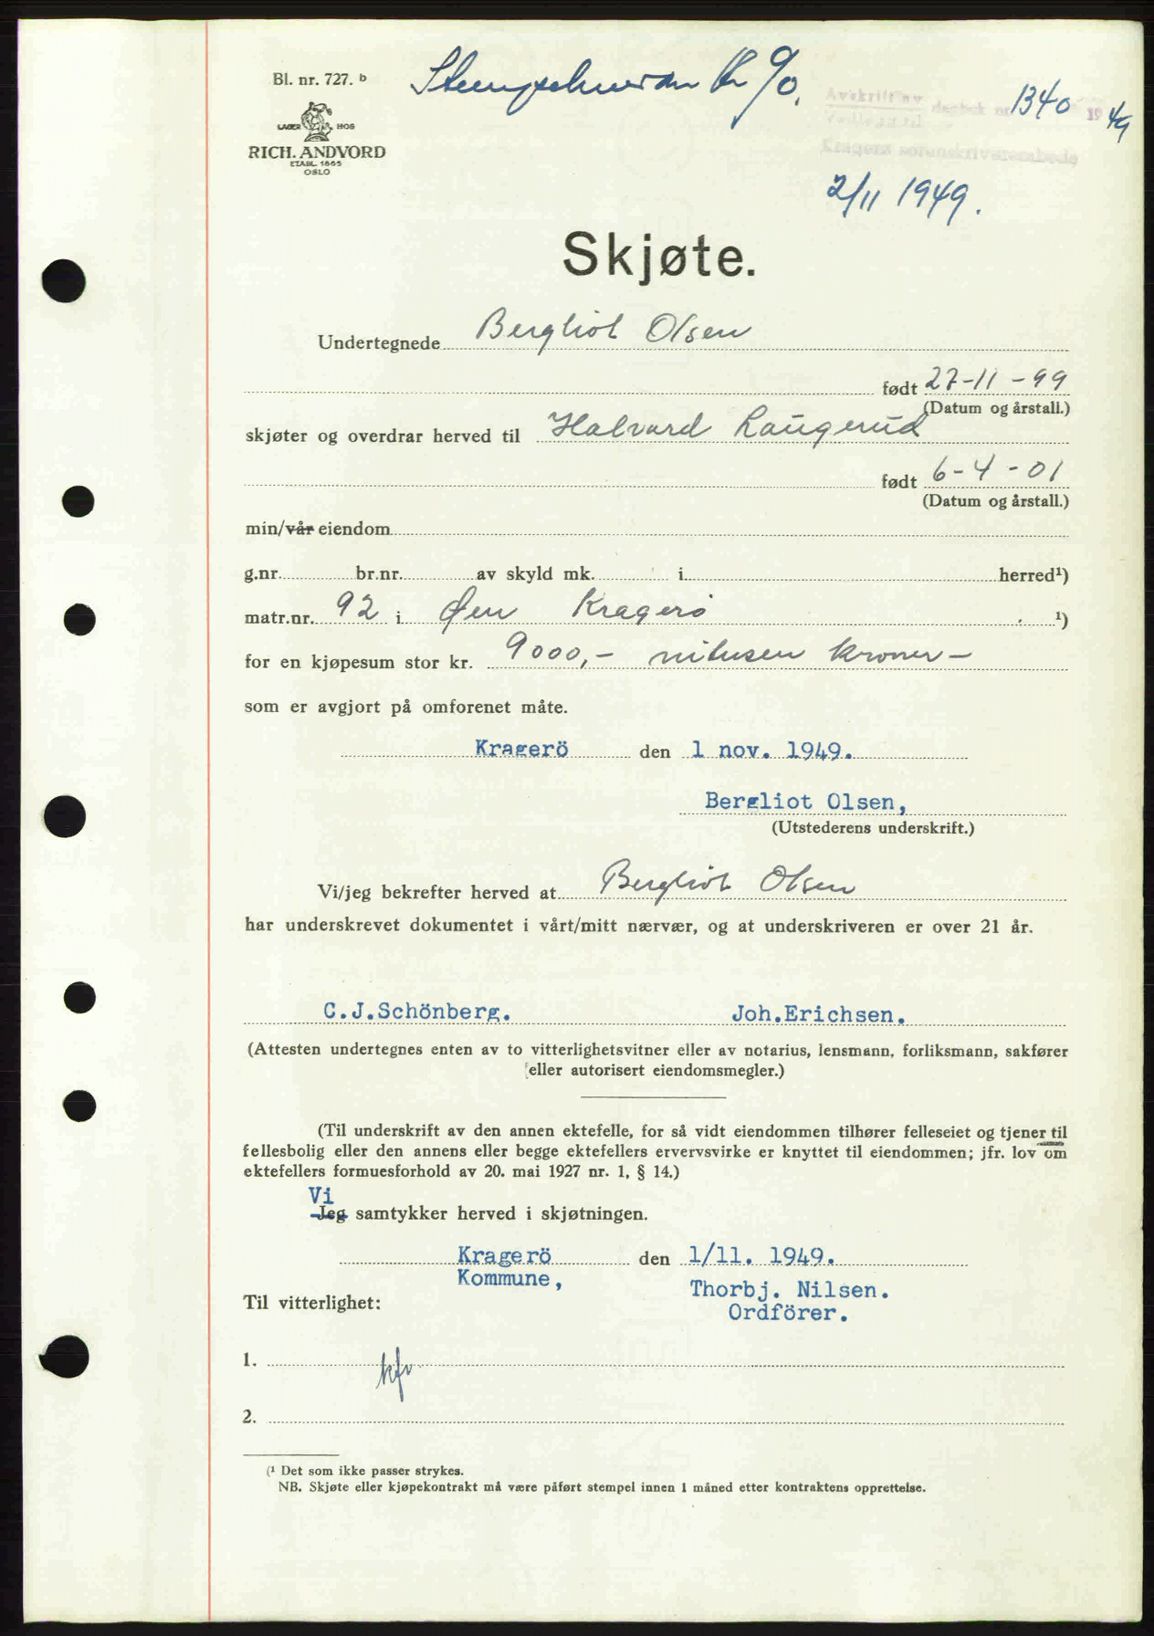 Bl. nr. 727. b
LAGER HOS
RICH. ANDVORD
ETABL. 1865
OSLO
kr 90.
Avskrift av dagbok nr. 1340 1949
Vedlegg til
Kragerø sorenskriverembede
2/11 1949.
Skjøte.
Undertegnede Bergliot Olsen
født 27-11-99
(Datum og årstall.)
skjøter og overdrar herved til Halvard Laugerud
født 6-4-01
(Datum og årstall.)
min/vår eiendom
g.nr. br.nr. av skyld mk. i herred¹)
matr.nr. 92 i Øen Kragerø ¹)
for en kjøpesum stor kr. 9000,- nitusen kroner-
som er avgjort på omforenet måte.
Kragerö den 1 nov. 1949.
Bergliot Olsen,
(Utstederens underskrift.)
Vi/jeg bekrefter herved at Bergliot Olsen
har underskrevet dokumentet i vårt/mitt nærvær, og at underskriveren er over 21 år.
C.J.Schönberg. Joh.Erichsen.
(Attesten undertegnes enten av to vitterlighetsvitner eller av notarius, lensmann, forliksmann, sakfører
eller autorisert eiendomsmegler.)
(Til underskrift av den annen ektefelle, for så vidt eiendommen tilhører felleseiet og tjener til
fellesbolig eller den annens eller begge ektefellers ervervsvirke er knyttet til eiendommen; jfr. lov om
ektefellers formuesforhold av 20. mai 1927 nr. 1, § 14.)
Vi
Jeg samtykker herved i skjøtningen.
Kragerö den 1/11. 1949.
Kommune, Thorbj. Nilsen.
Ordförer.
Til vitterlighet:
1.
2.
(¹ Det som ikke passer strykes.
NB. Skjøte eller kjøpekontrakt må være påført stempel innen 1 måned etter kontraktens opprettelse.